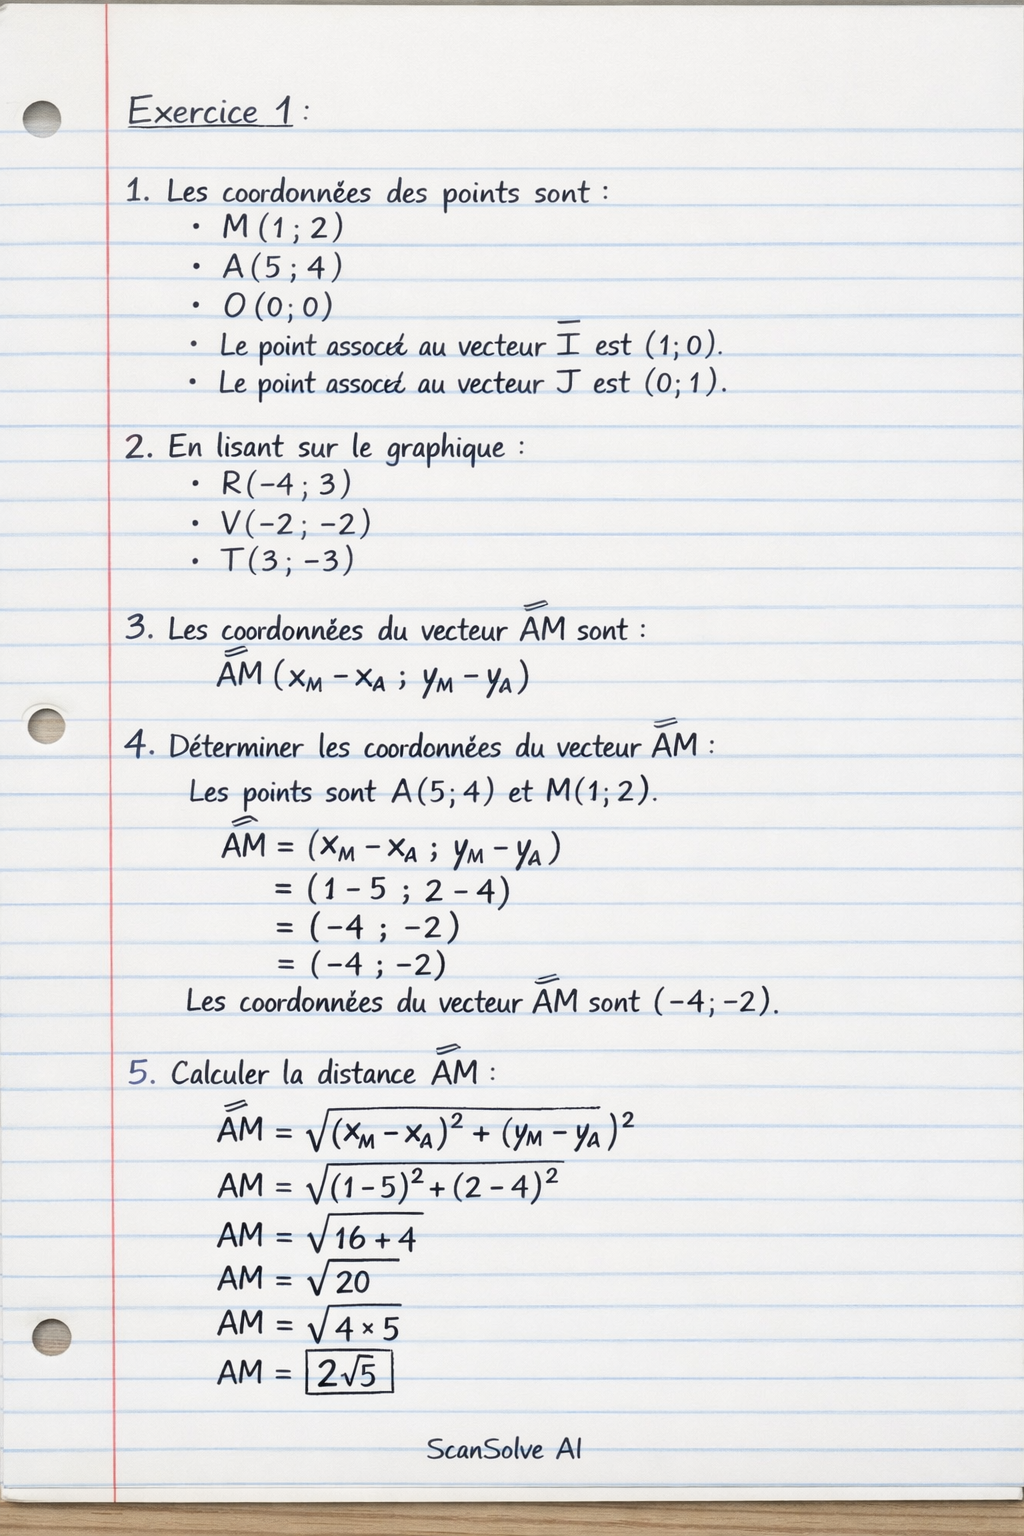 Exercice 1 :
1. Les coordonnées des points sont :
• M (1 ; 2)
• A (5 ; 4)
• O (0 ; 0)
• Le point au vecteur I est (1 ; 0).
• Le point au vecteur J est (0 ; 1).
2. En lisant sur le graphique :
• R(−4 ; 3)
• V(−2 ; −2)
• T(3 ; −3)
3. Les coordonnées du vecteur AM sont :
AM (x_M − x_A ; y_M − y_A)
4. Déterminer les coordonnées du vecteur AM :
Les points sont A(5 ; 4) et M(1 ; 2).
AM = (x_M − x_A ; y_M − y_A)
= (1 − 5 ; 2 − 4)
= (−4 ; −2)
= (−4 ; −2)
Les coordonnées du vecteur AM sont (−4 ; −2).
5. Calculer la distance AM :
AM = √(x_M − x_A)² + (y_M − y_A)²
AM = √(1 − 5)² + (2 − 4)²
AM = √16 + 4
AM = √20
AM = √4 × 5
AM = 2√5
ScanSolve AI